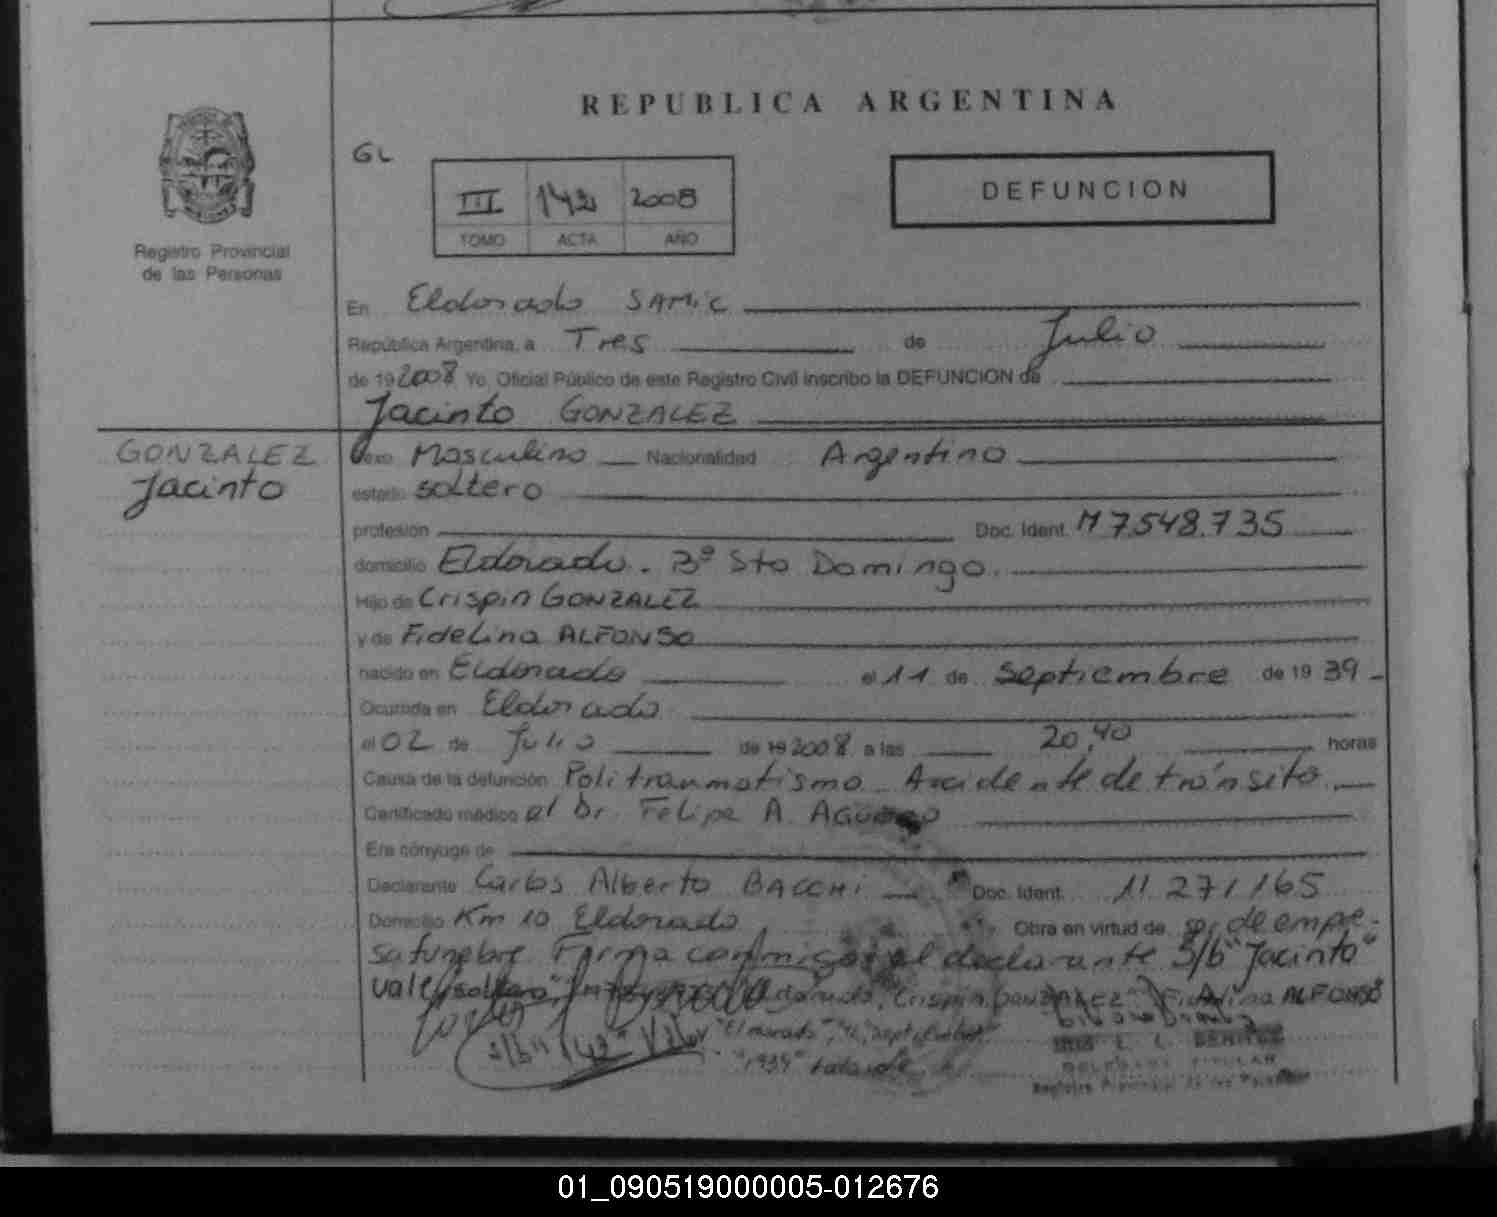 REPUBLICA ARGENTINA
GL
III 142 2008
TOMO ACTA AÑO
DEFUNCION
Registro Provincial
de las Personas
En Eldorado SAMIC
República Argentina, a Tres de Julio
de 19 2008 Yo, Oficial Público de este Registro Civil inscribo la DEFUNCION de
Jacinto GONZALEZ
GONZALEZ
Jacinto
Sexo Masculino Nacionalidad Argentino
estado soltero
profesión Doc. Ident. M 7.548.735
domicilio Eldorado. Bº Sto Domingo.
Hijo de Crispin GONZALEZ
y de Fidelina ALFONSO
nacido en Eldorado el 11 de septiembre de 19 39
Ocurrida en Eldorado
el 02 de Julio de 19 2008 a las 20,40 horas
Causa de la defunción Politraumatismo Accidente de tránsito.
Certificado médico del Dr. Felipe A. AGUERO
Era cónyuge de
Declarante Carlos Alberto BACCHI Doc. Ident. 11.271.165
Domicilio Km 10 Eldorado Obra en virtud de ser de empre-
sa funebre. Firma conmigo el declarante S/b "Jacinto"
vale, soltero, Crispin GONZALEZ ALFONSO
s/b "142" Valor
"1939"
L. BENITEZ
Registro Provincial de las Personas
01_090519000005-012676